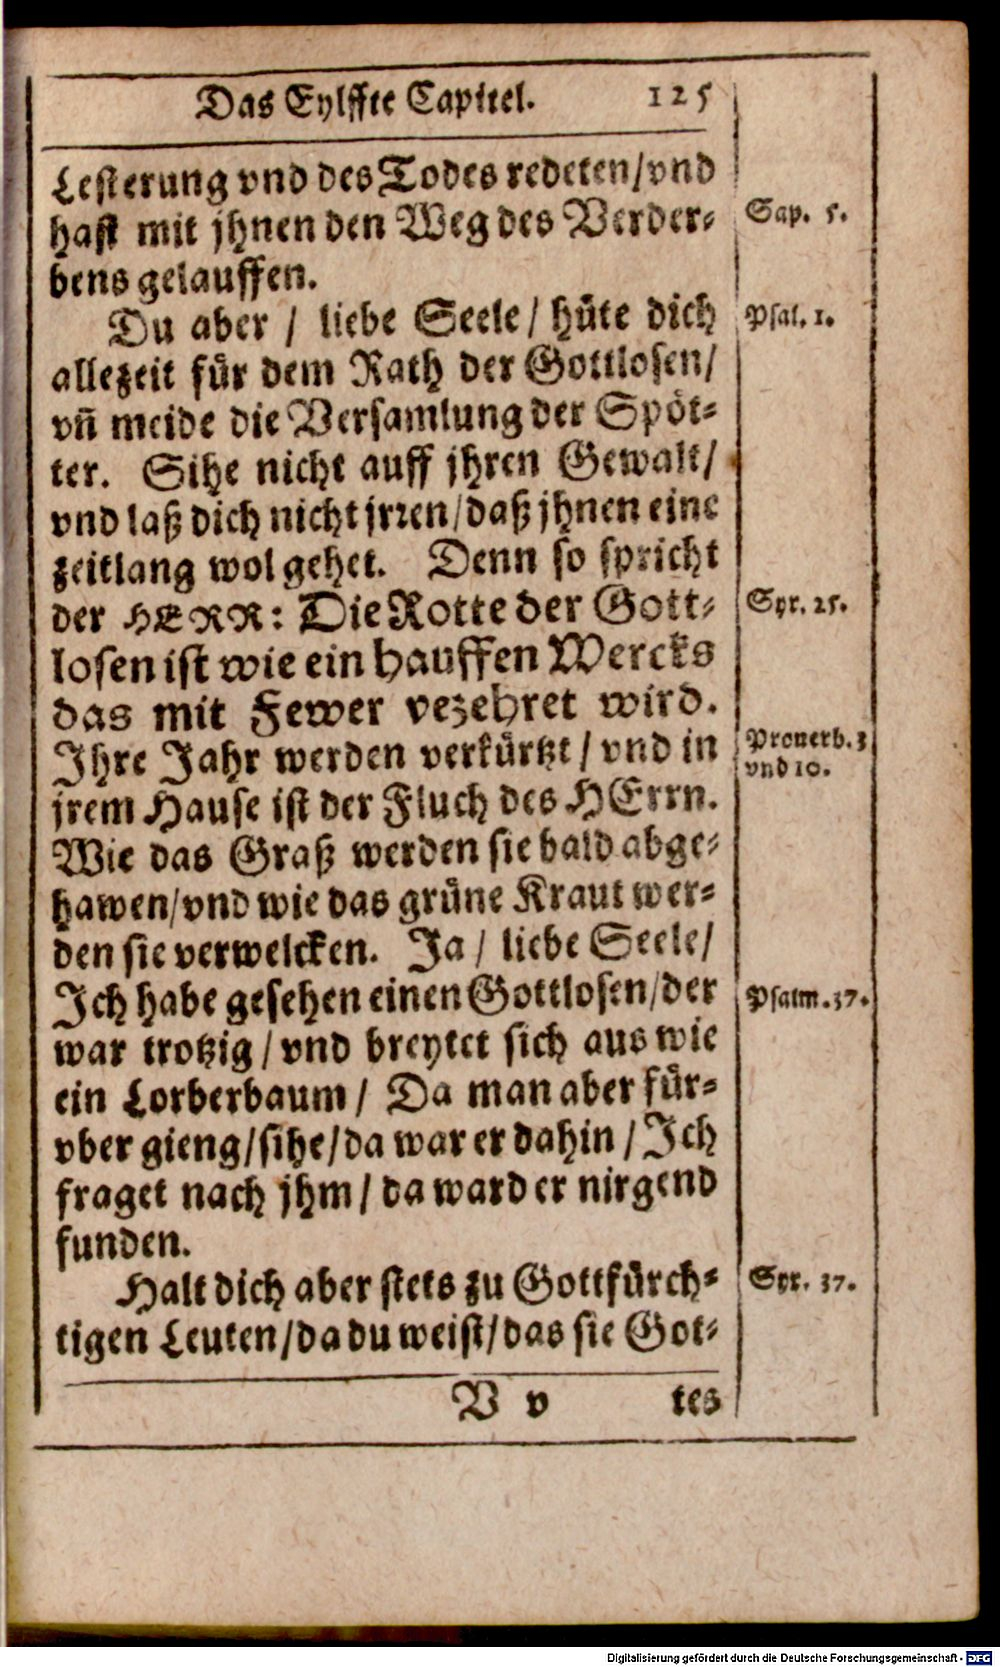 Das Eylffte Capitel. 125
Lesterung vnd des Todes redeten/vnd
hast mit jhnen den Weg des Verder-
bens gelauffen.
Sap. 5.
Du aber / liebe Seele / hüte dich
Psal. 1.
allezeit für dem Rath der Gottlosen/
vñ meide die Versamlung der Spöt-
ter. Sihe nicht auff jhren Gewalt/
vnd laß dich nicht jrren/daß jhnen eine
zeitlang wol gehet. Denn so spricht
der HERR: Die Rotte der Gott-
Syr. 25.
losen ist wie ein hauffen Wercks
das mit Fewer vezehret wird.
Ihre Jahr werden verkürtzt / vnd in
Prouerb. 3
vnd 10.
jrem Hause ist der Fluch des HErrn.
Wie das Graß werden sie bald abge-
hawen/vnd wie das grüne Kraut wer-
den sie verwelcken. Ja / liebe Seele/
Ich habe gesehen einen Gottlosen/der
Psalm. 37.
war trotzig / vnd breytet sich aus wie
ein Lorberbaum / Da man aber für-
vber gieng/sihe/da war er dahin / Ich
fraget nach jhm / da ward er nirgend
funden.
Halt dich aber stets zu Gottfürch-
Syr. 37.
tigen Leuten/da du weist/das sie Got-
V v tes
Digitalisierung gefördert durch die Deutsche Forschungsgemeinschaft - DFG